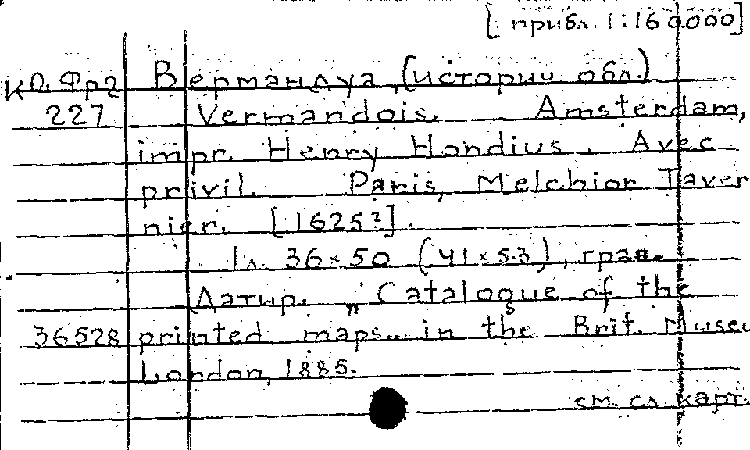 [прибл. 1:160000]
КО. Фр2 Вермандуа, (историч. обл.)
227 Vermandois. Amsterdam,
impr. Henry Hondius. Avec
privil. Paris, Melchior Taver
nier. [1625?].
1 л. 36×50 (41×53), грав.
Датир. „Catalogue of the
36528 printed maps... in the Brit. Museu
London, 1885.
см. сл. карт.